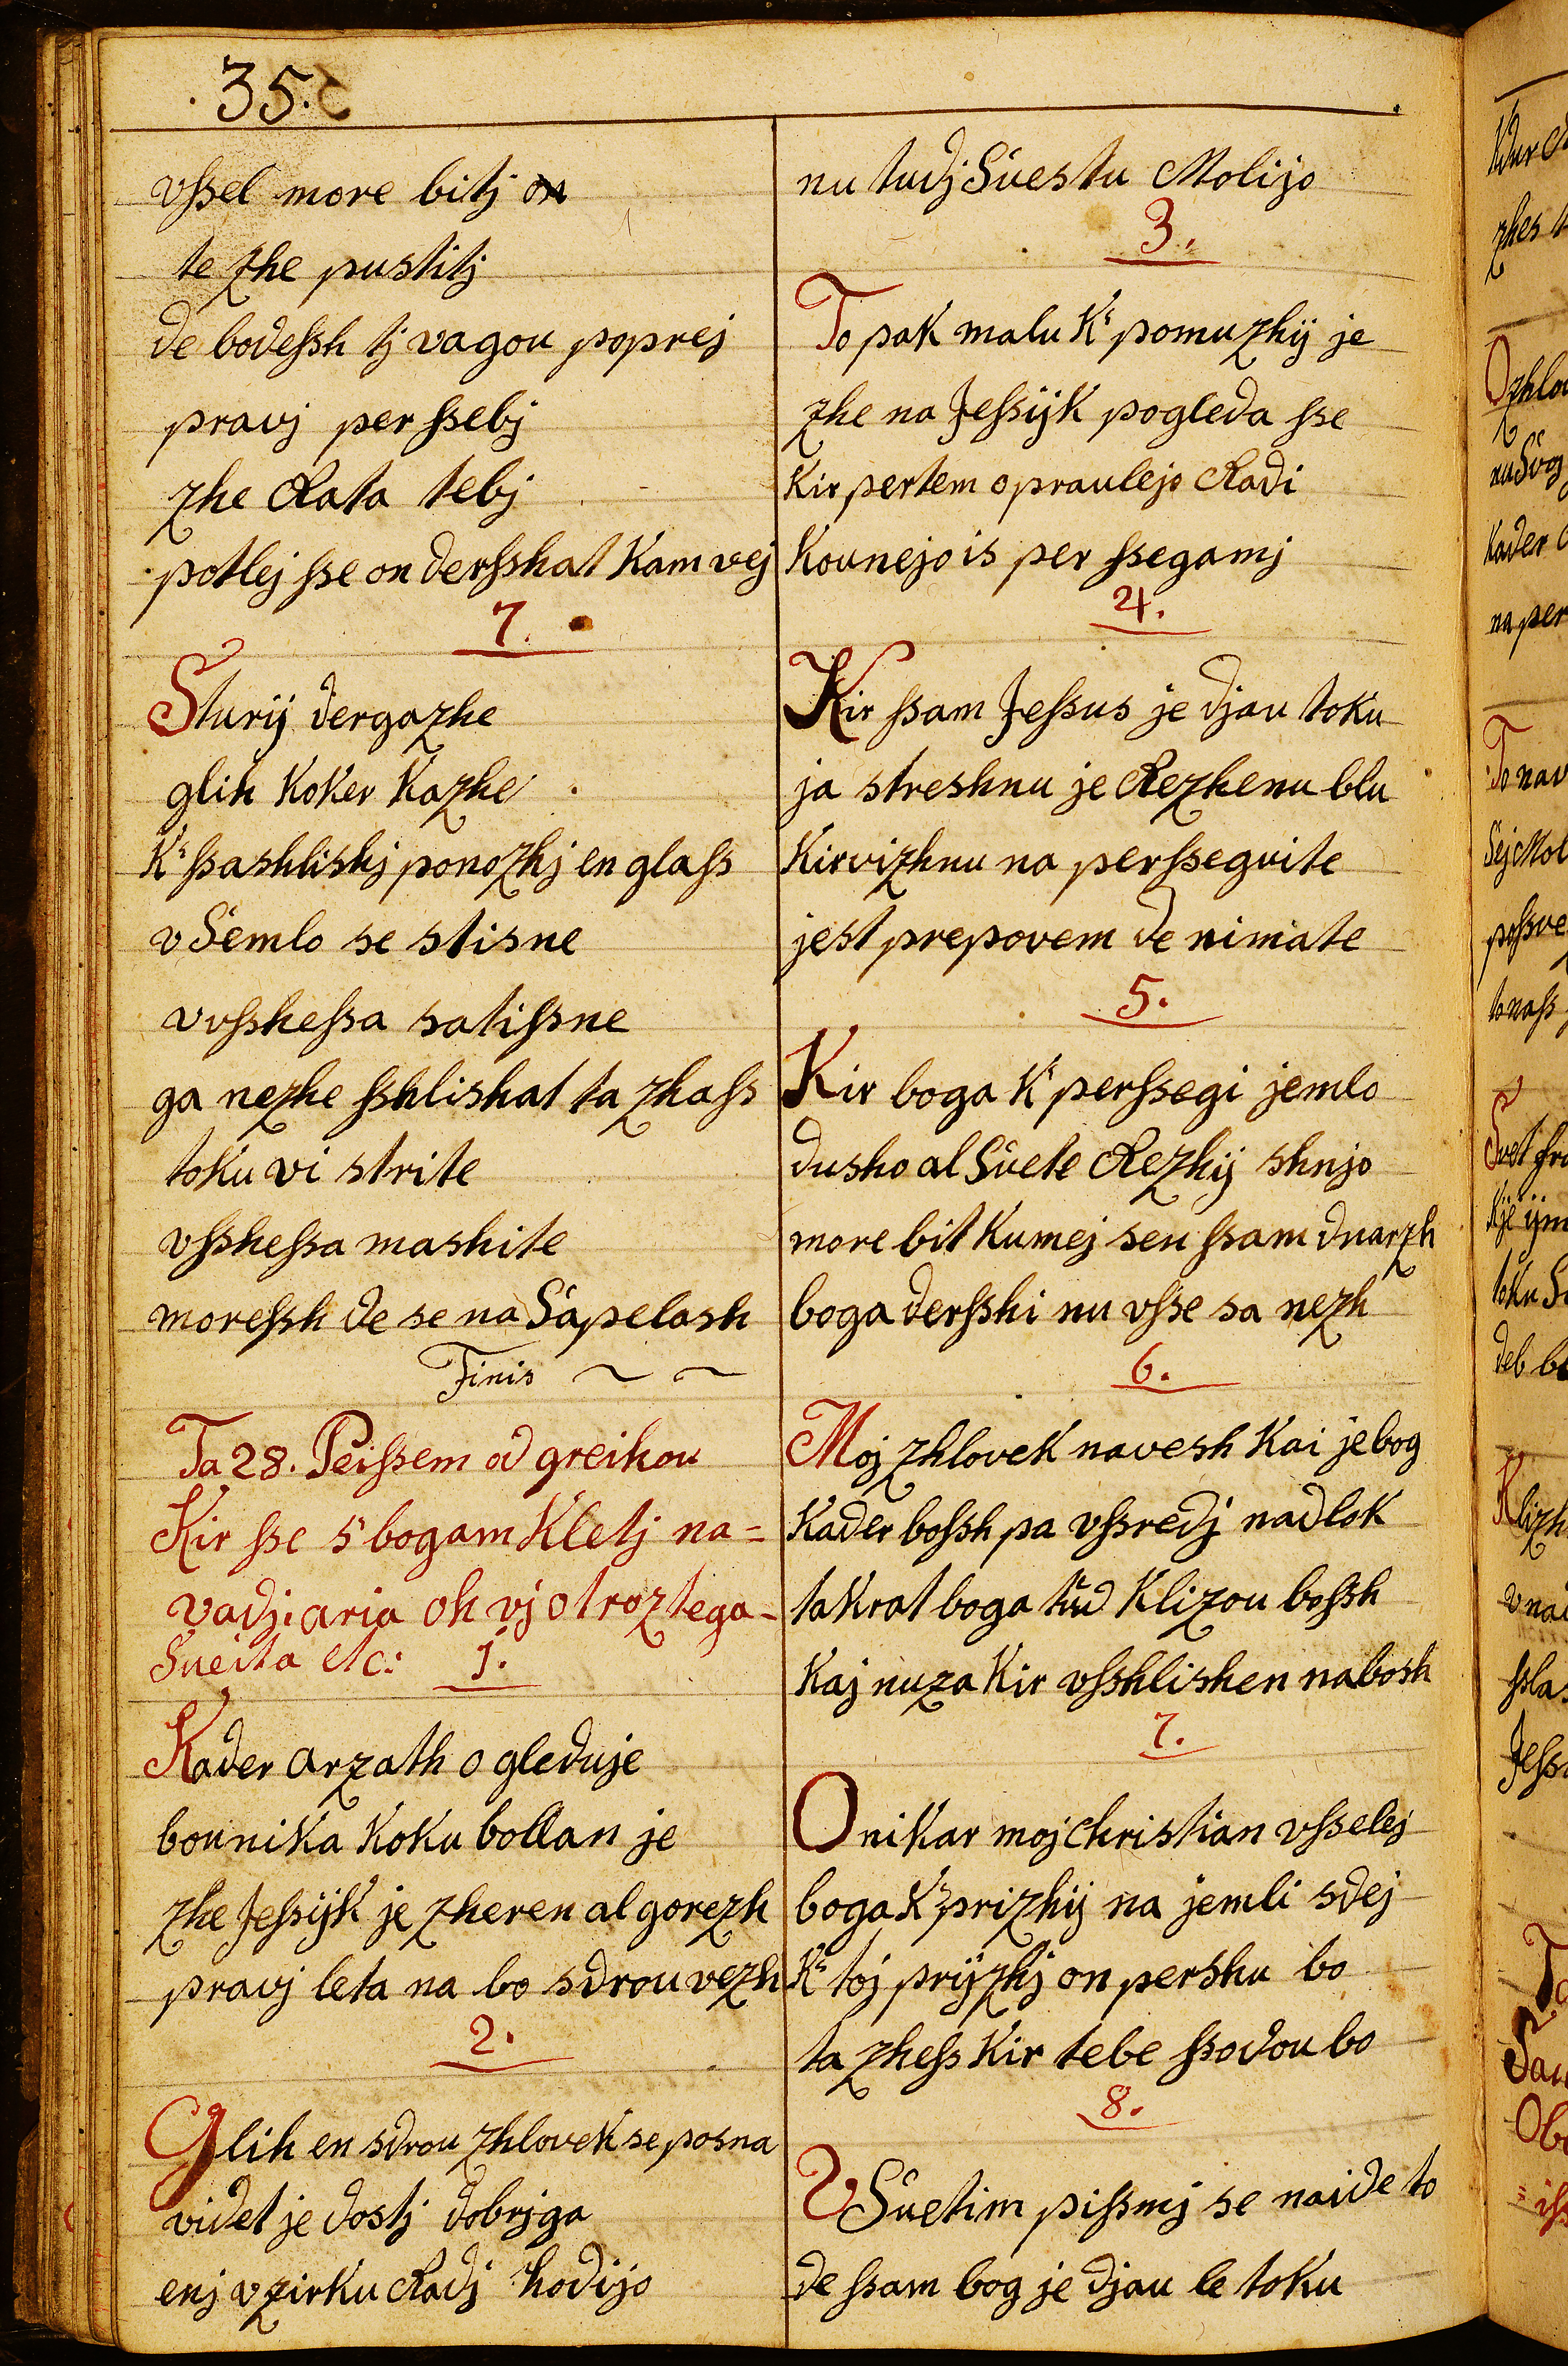 35.
vſsel more bitj
te zhe pustitj
de bodeſsh tj vagou poprej
pravj per ſsebj
zhe Rata tebj
potlej ſse on derſshat Kam vej
7.
Sturij dergazhe
glih Koker Kazhe
K' ſsashlishj ponozhj en glaſs
v Semlo se stisne
vvſsheſsa satiſsne
ga nezhe ſshlishat ta zhaſs
toku vi strite
vſsheſsa mashite
moreſsh de se na Sapelash
Finis
Ta 28. Peiſsem od greihou
Kir ſse s' bogam Kletj na=
vadj: aria oh vj otroz tega
Sueita etc: 1.
Kader arzath ogleduje
bounika Koku bollan je
zhe Jeſsijk je zheren al gorezh
pravj leta na bo sdrou vezh
2.
Glih en sdrou zhlovek se posna
videt je dostj dobrjga
enj v zirku Radj hodijo
nu tudj Suestu Molijo
3.
To pak malu K' pomuzhij je
zhe na Jeſsijk pogleda ſse
Kir pertem opraulejo Radi
Kounejo is per ſsegamj
4.
Kir ſsam Jeſsus je djau toku
ja streshnu je Rezhenu blu
Kir vizhnu na perſsegvite
jest prepovem de nimate
5.
Kir boga K' perſsegi jemlo
dusho al Suete Rezhij shnjo
more bit Kumej sen ſsam dnarzh
boga derſshi nu vſse sa nezh
6.
Moj zhlovek navesh Kai je bog
Kader boſsh pa vſsredj nadlok
takrat boga tud Klizou boſsh
Kaj nuza Kir vſshlishen nabosh
7.
O nikar moj Christian vſselej
boga K' prizhij na jemli sdej
K' toj prijzhj on pershu bo
ta zheſs Kir tebe ſsodou bo
8.
V Suetim piſsmj se naide to
de ſsam bog je djau le toku